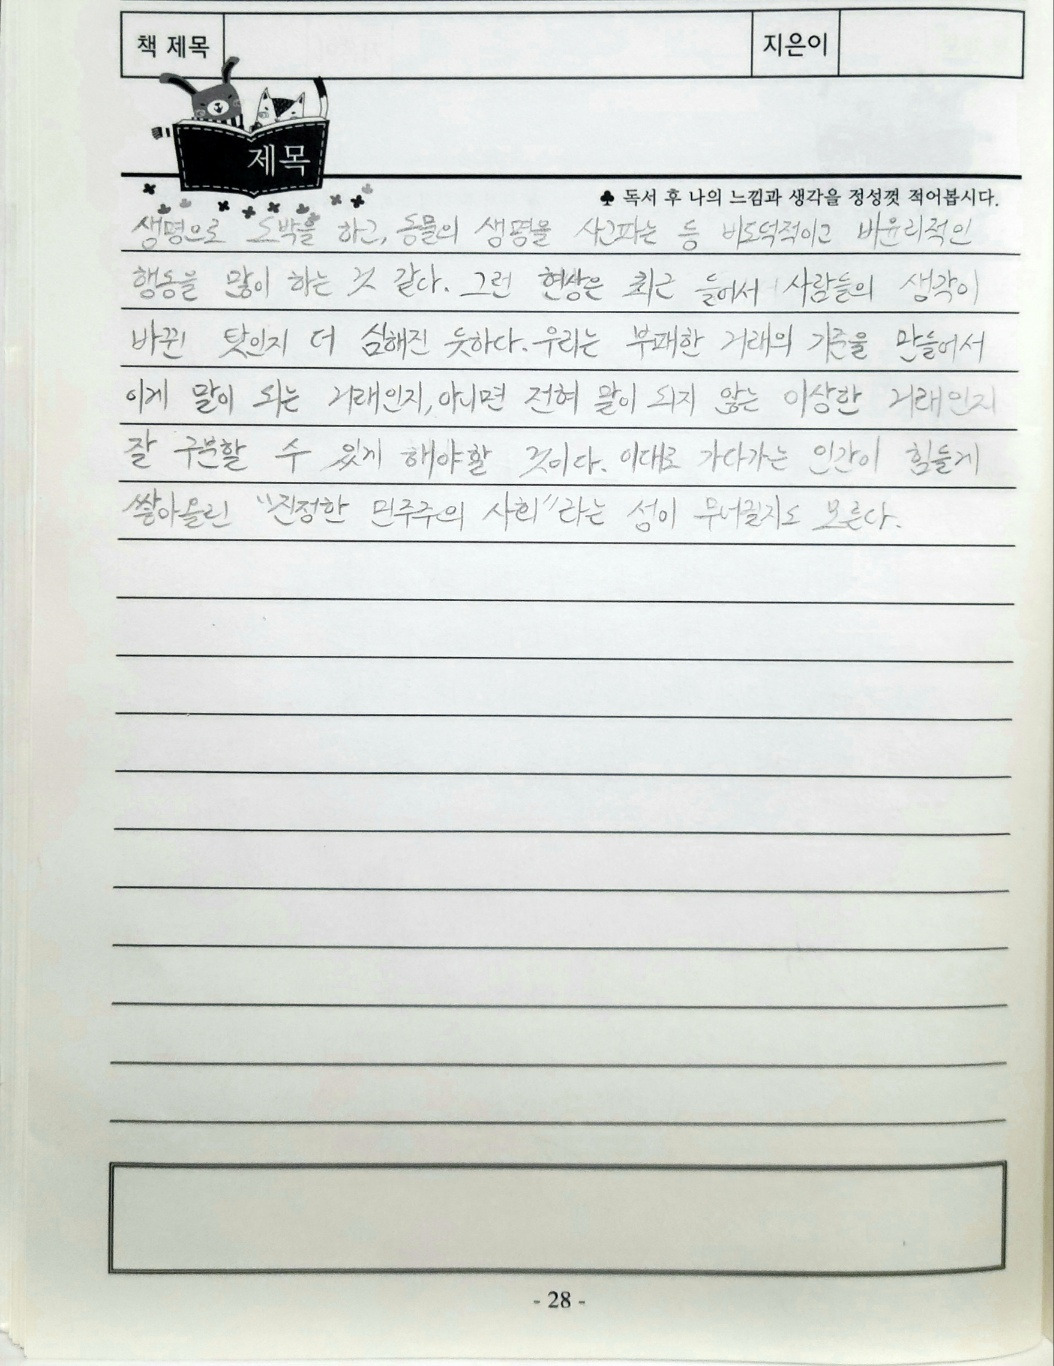 책 제목 지은이
제목
♣ 독서 후 나의 느낌과 생각을 정성껏 적어봅시다.
생명으로 도박을 하고, 동물의 생명을 사고파는 등 비도덕적이고 비윤리적인
행동을 많이 하는 것 같다. 그런 현상은 최근 들어서 사람들의 생각이
바뀐 탓인지 더 심해진 듯하다. 우리는 부패한 거래의 기준을 만들어서
이게 말이 되는 거래인지, 아니면 전혀 말이 되지 않는 이상한 거래인지
잘 구분할 수 있게 해야할 것이다. 이대로 가다가는 인간이 힘들게
쌓아올린 "진정한 민주주의 사회"라는 성이 무너질지도 모른다.
- 28 -